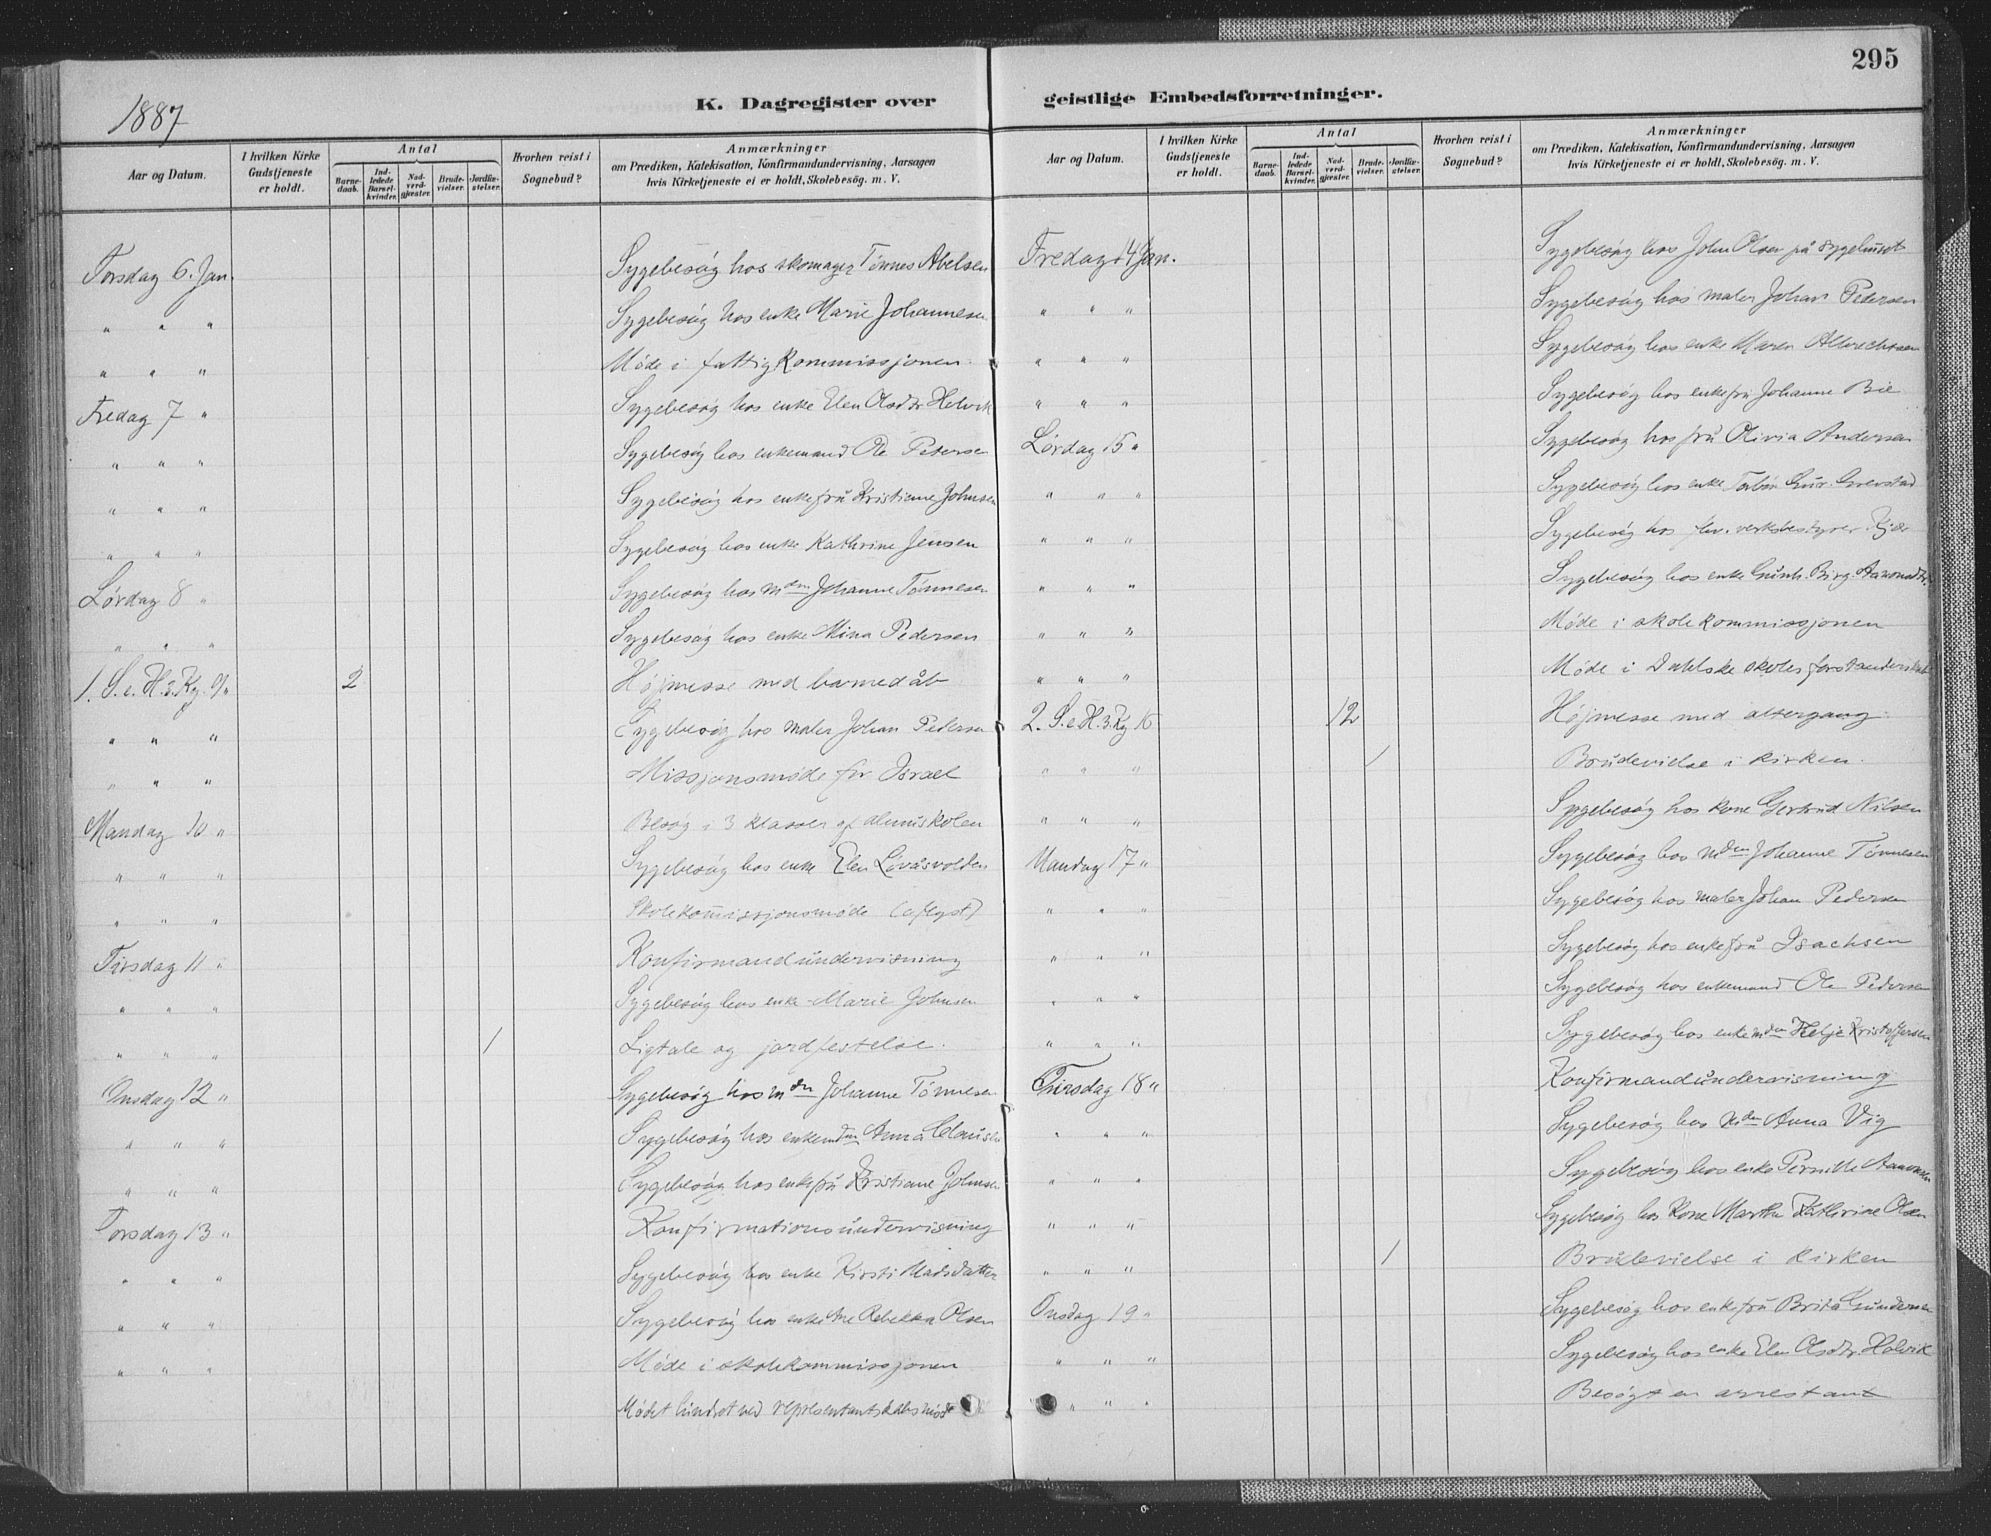 295
1887
K. Dagregister over geistlige Embedsforretninger.
Aar og Datum.
I hvilken Kirke Gudstjeneste er holdt.
Antal
Barnedaab.
Indledede Barselkvinder.
Nadverdgjæster.
Brudevielser.
Jordfæstelser.
Hvorhen reist i Sognebud?
Anmærkninger
om Prædiken, Katekisation, Konfirmandundervisning, Aarsagen
hvis Kirketjeneste ei er holdt, Skolebesøg. m. V.
Torsdag 6. Jan. Sygebesøg hos skomager Tønnes Abelsen
" " " Sygebesøg hos enke Marie Johannesen
" " " Møde i fattigkommissjonen
Fredag 7 " Sygebesøg hos enke Elen Olsdtr Holvik
" " " Sygebesøg hos enkemand Ole Petersen
" " " Sygebesøg hos enkefru Kristiane Johnsen
" " " Sygebesøg hos enke Kathrine Jensen
Lørdag 8 " Sygebesøg hos mdm Johanne Tønnesen
" " " Sygebesøg hos enke Mina Pedersen
1. S. e. H. 3. Kg. 9/" 2 Højmesse med barnedåb
" " " Sygebesøg hos maler Johan Pedersen
" " " Missjonsmøde for Israel
Mandag 10 " Besøg i 3 klasser af almuskolen
" " " Sygebesøg hos enke Elen
" " " Skolekommissjonsmøde (aflyst)
Tirsdag 11 " Konfirmandundervisning
" " " Sygebesøg hos enke Marie Johnsen
" " " 1 Ligtale og jordfestelse.
Onsdag 12 " Sygebesøg hos mdm Johanne Tønnesen
" " " Sygebesøg hos enkemdm Anna Clausen
" " " Sygebesøg hos enkefru Kristiane Johnsen
Torsdag 13 " Konfirmationsundervisning
" " " Sygebesøg hos enke Kirsti Madsdatter
" " " Sygebesøg hos enke Ane Rebekka Olsen
" " " Møde i skolekommissjonen
Mødet hindret ved representantskabsmøde
Aar og Datum.
I hvilken Kirke Gudstjeneste er holdt.
Antal
Barnedaab.
Indledede Barselkvinder.
Nadverdgjæster.
Brudevielser.
Jordfæstelser.
Hvorhen reist i Sognebud?
Anmærkninger
om Prædiken, Katekisation, Konfirmandundervisning, Aarsagen
hvis Kirketjeneste ei er holdt, Skolebesøg. m. V.
Fredag 14 Jan. Sygebesøg hos John Olsen på sygehuset
" " " Sygebesøg hos maler Johan Pedersen
" " " Sygebesøg hos enke Maren Albrechtsen
" " " Sygebesøg hos enkefru Johanne Bie
Lørdag 15 " Sygebesøg hos fru Olivia Andersen
" " " Sygebesøg hos enke
" " " Sygebesøg hos fhv. verksbestyrer
" " " Sygebesøg hos enke Gunh. Birg. Aanonsdtr.
" " " Møde i skolekommissjonen
" " " Møde i Dahlske skoles forstanderskab
2. S. e. H. 3. Kg 16 12 Højmesse med altergang
" " " 1 Brudevielse i kirken.
" " " Sygebesøg hos kone Gertrud Nilsen
Mandag 17 " Sygebesøg hos mdm Johanne Tønnesen
" " " Sygebesøg hos maler Johan Pedersen
" " " Sygebesøg hos enkefru Isachsen
" " " Sygebesøg hos enkemand Ole Pedersen
" " " Sygebesøg hos enkemdm Helje Kristoffersen
Tirsdag 18 " Konfirmandundervisning
" " " Sygebesøg hos mdm Anna Vig
" " " Sygebesøg hos enke Pernille Aanonsen
" " " Sygebesøg hos kone Marthe Kathrine Olsen
" " " 1 Brudevielse i kirken
Onsdag 19 " Sygebesøg hos enkefru Brita Gundersen
" " " Sygebesøg hos enke Elen Olsdtr. Holvik
" " " Besøgt en arrestant